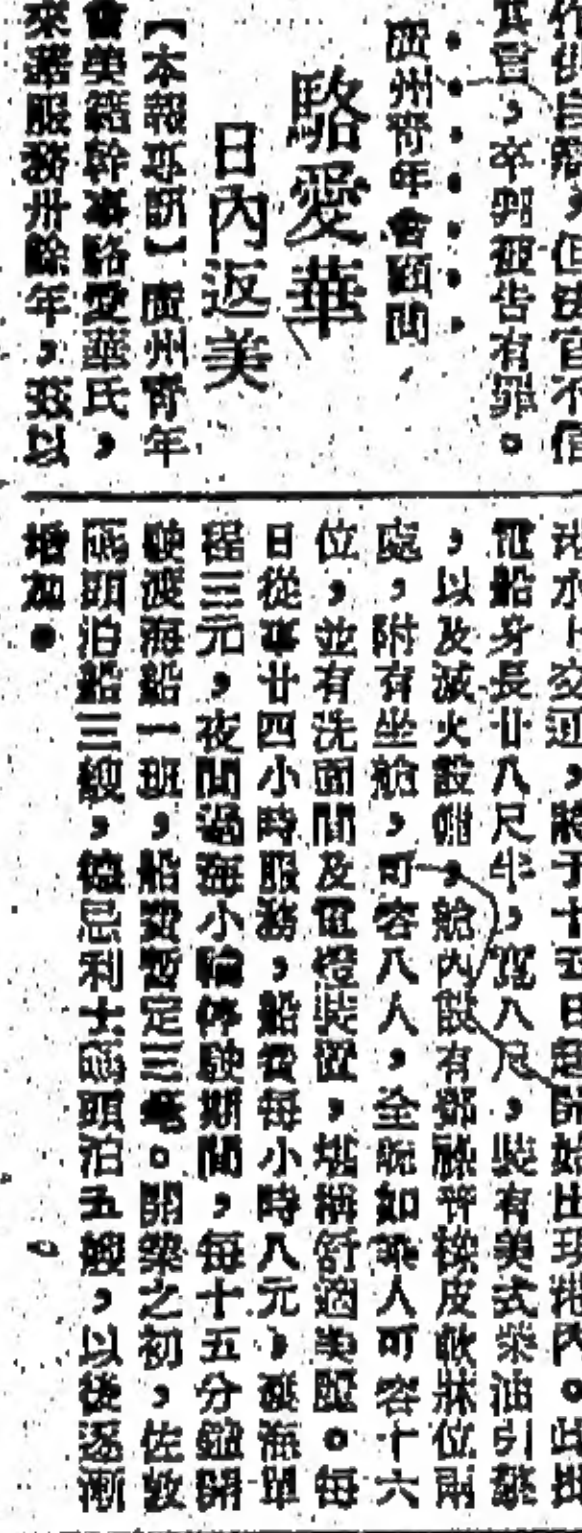 其冒，卒判被告有罪。
廣州青年會顧問
駱愛華
日內返美
【本報專訊】廣州青年
會美籍幹事駱愛華氏，
來華服務卅餘年，茲以
電船身長廿八尺半，寬八尺，裝有美式柴油引擎
，以及滅火設備，艙內設有膠床位兩
處，附有坐艙，可容八人，全艇如乘人可容十六
位，並有洗面間及電燈裝置，堪稱舒適美麗。每
日從事廿四小時服務，船費每小時八元，渡海單
程三元，夜間過海小輪停駛期間，每十五分鐘開
駛渡海船一班，船費暫定三毫。開業之初，佐敦
碼頭泊船三艘，德忌利士碼頭泊五艘，以後逐漸
增加。